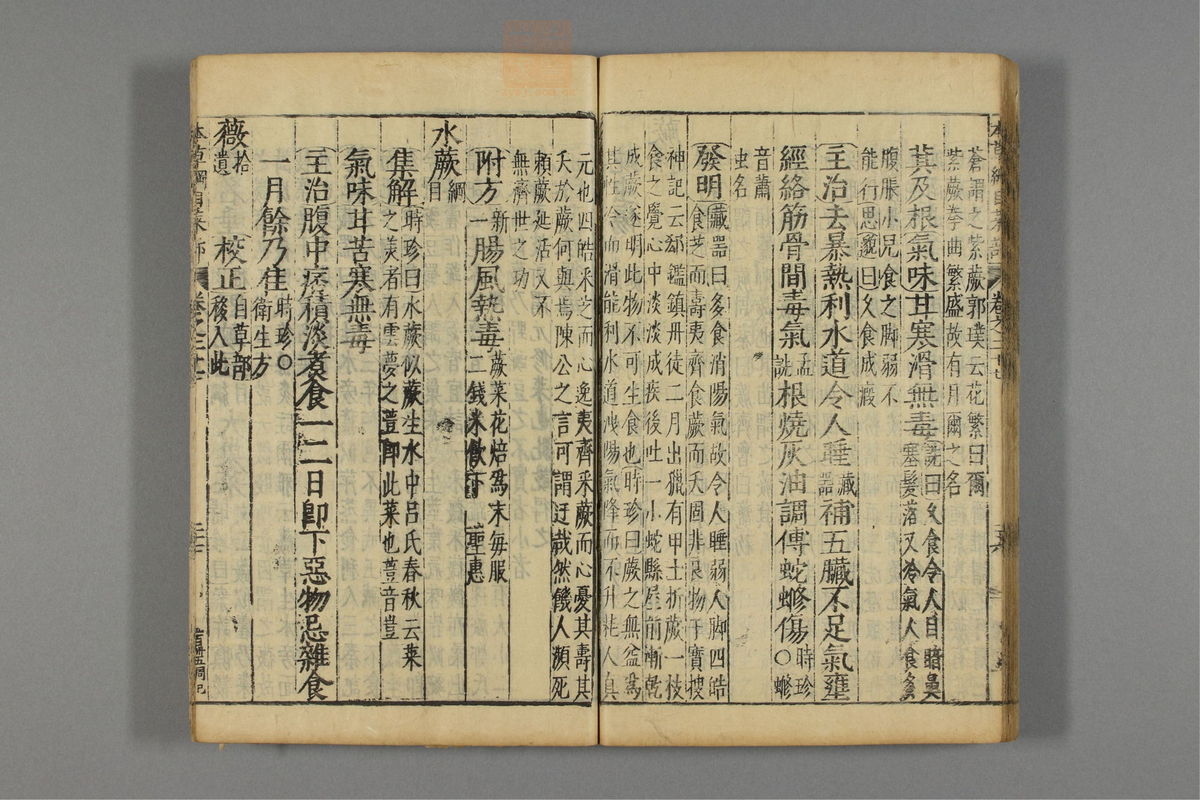 蒼謂之紫蕨郭璞云花繁曰爾
紫蕨拳曲繁盛故有月爾之名
萁及根氣味甘寒滑無毒詵曰久食令人目暗鼻
塞髮落又冷氣人食多
腹脹小兒食之脚弱不
能行思邈曰久食成瘕
主治去暴熱利水道令人睡藏器補五臟不足氣壅
經絡筋骨間毒氣孟詵根燒灰油調傅蛇蟰傷〇時珍蟰
音蕭
虫名
發明藏器曰多食消陽氣故令人睡弱人脚四皓
食芝而壽夷齊食蕨而夭固非良物干寶搜
神記云郄鑑鎮丹徒二月出獵有甲士折蕨一枝
食之覺心中淡淡成疾後吐一小蛇縣屋前漸乾
成蕨遂明此物不可生食也時珍曰蕨之無益爲
其性冷而滑能利水道洩陽氣降而不升耗人真
元也四皓采芝而心逸夷齊采蕨而心憂其壽其
夭於蕨何與焉陳公之言可謂迂哉然饑人瀕死
賴蕨延活又不
無濟世之功
附方新一腸風熱毒蕨菜花焙爲末每服
二錢米飲下 聖惠
水蕨綱目
集解時珍曰水蕨似蕨生水中呂氏春秋云菜
之美者有雲夢之䔇即此菜也䔇音豈
氣味甘苦寒無毒
主治腹中痞積淡煮食一二日即下惡物忌雜食
一月餘乃佳時珍〇衛生方
薇拾遺 校正自草部後入此